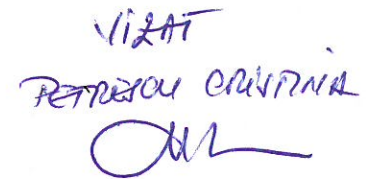 VIZAT
PETRESCU CRISTINA